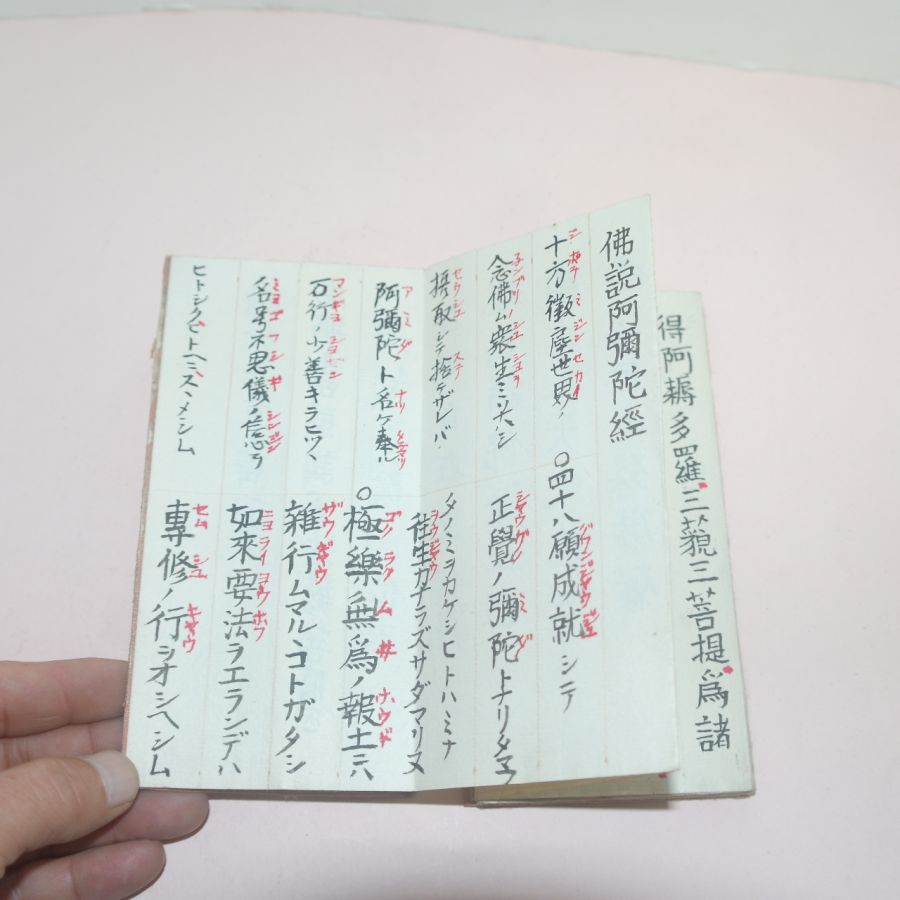 得阿耨多羅三藐三菩提爲諸
佛説阿彌陀經
十方微塵世界ノ
念佛ノ衆生ミソナハシ
攝取シテ捨テザレバ
阿彌陀ト名ケ奉ル
万行ノ少善キラヒツヽ
名号不思儀ノ信心ヲ
ヒトシクヒトヘニスヽメシム
○四十八願成就シテ
正覺ノ彌陀トナリタマフ
タノミヲカケシヒトハミナ
往生カナラズサダマリヌ
○極樂無爲ノ報土ニハ
雜行ムマルヽコトガタシ
如來要法ヲエランデハ
專修ノ行ヲオシヘシム